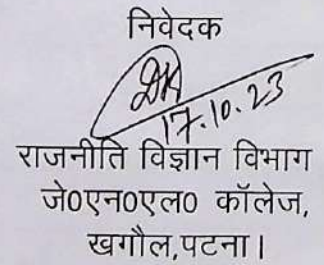 निवेदक
17.10.23
राजनीति विज्ञान विभाग
जे0एन0एल0 कॉलेज,
खगौल,पटना।